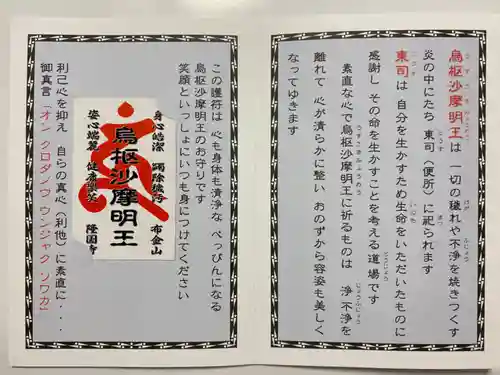 烏枢沙摩明王は 一切の穢れや不浄を焼きつくす
炎の中にたち 東司（便所）に祀られます
東司は 自分を生かすため生命をいただいたものに
感謝し その命を生かすことを考える道場です
素直な心で烏枢沙摩明王に祈るものは 浄不浄を
離れて 心が清らかに整い おのずから容姿も美しく
なってゆきます
この護符は 心も身体も清浄な べっぴんになる
烏枢沙摩明王のお守りです
笑顔といっしょにいつも身につけてください
身心皓潔
布金山
烏枢沙摩明王
姿心端麗 健康果芳
隆国寺
利己心を抑え 自らの真心（利他）に素直に・・・
御真言「オン クロダノウ ウンジャク ソワカ」